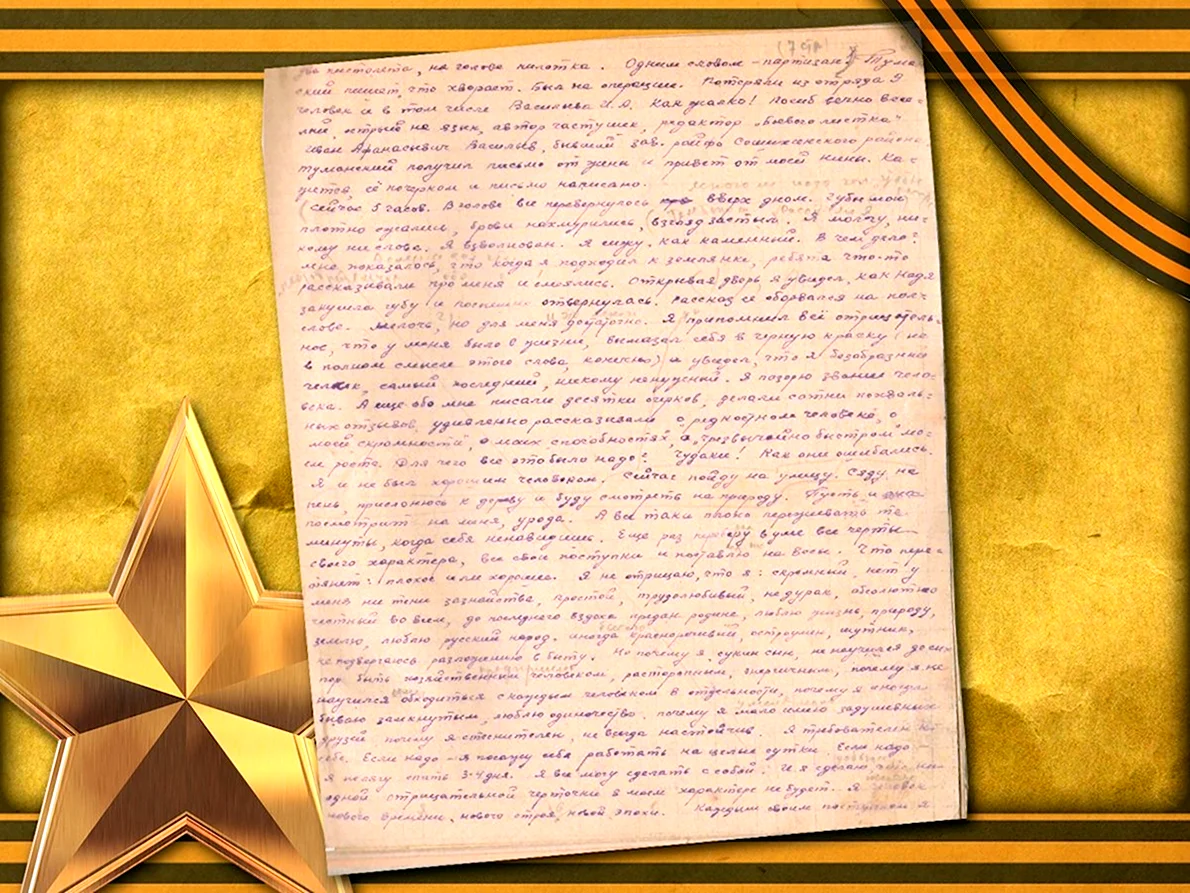 (7 ч)
два пистолета, на голове пилотка. Одним словом - партизан! Тума-
ский пишет, что хворает. Был на операции. Потеряли из отряда 9
человек и в том числе Васильева И.А. Как жалко! Погиб вечно весе-
лый, острый на язык, автор частушек, редактор „Боевого листка"
Иван Афанасьевич Васильев, бывший зав. райфо Сошихинского района
Туманский получил письмо от жены и привет от моей Нины. Ка-
жется её почерком и письмо написано.
(Сейчас 5 часов. В голове все перевернулось вверх дном. Губы мои
плотно сжались, брови нахмурились, взгляд застыл. Я молчу, ни-
кому ни слова. Я взволнован. Я сижу, как каменный. В чем дело?
Мне показалось, что когда я подходил к землянке, ребята что-то
рассказывали про меня и смеялись. Открывая дверь я увидел, как Надя
закусила губу и поспешно отвернулась. Рассказ оборвался на пол-
слове. Мелочь, но для меня достаточно. Я припомнил всё отрицатель-
ное, что у меня было в жизни, вымазал себя в черную краску (не
в полном смысле этого слова, конечно) и увидел, что я безобразный
человек, самый последний, никому ненужный. Я позорю звание чело-
века. А еще обо мне писали десятки очерков, делали сотни похваль-
ных отзывов, удивленно рассказывали о „редкостном человеке", о
моей „скромности", о моих „способностях", о „чрезвычайно быстром" мо-
ем росте. Для чего все это было надо? Чудаки! Как они ошибались.
Я и не был хорошим человеком. Сейчас пойду на улицу. Сяду на
пень, прислонюсь к дереву и буду смотреть на природу. Пусть и она
посмотрит на меня, урода. А все таки плохо переживать те
минуты, когда себя ненавидишь. Еще раз переберу в уме все черты
своего характера, все свои поступки и поставлю на весы. Что пере-
тянет: плохое или хорошее. Я не отрицаю, что я: скромный, нет у
меня ни тени зазнайства, простой, трудолюбивый, не дурак, абсолютно
честный во всем, до последнего вздоха предан родине, люблю жизнь, природу,
землю, люблю русский народ. Иногда красноречивый, остроумен, шутник,
не подвергаюсь разложению в быту. Но почему я, сукин сын, не научился до сих
пор быть хозяйственным человеком, расторопным, энергичным, почему я не
научился обходиться с каждым человеком в отдельности, почему я иногда
бываю замкнутым, люблю одиночество. почему я мало имею задушевных
друзей почему я стеснителен, не всегда настойчив. Я требователен к
себе. Если надо - я посажу себя работать на целые сутки. Если надо -
я лягу спать 3-4 дня. Я все могу сделать с собой. И я сделаю,
одной отрицательной черточки в моем характере не будет. Я человек
нового времени, нового строя, новой эпохи. Каждым своим поступком я